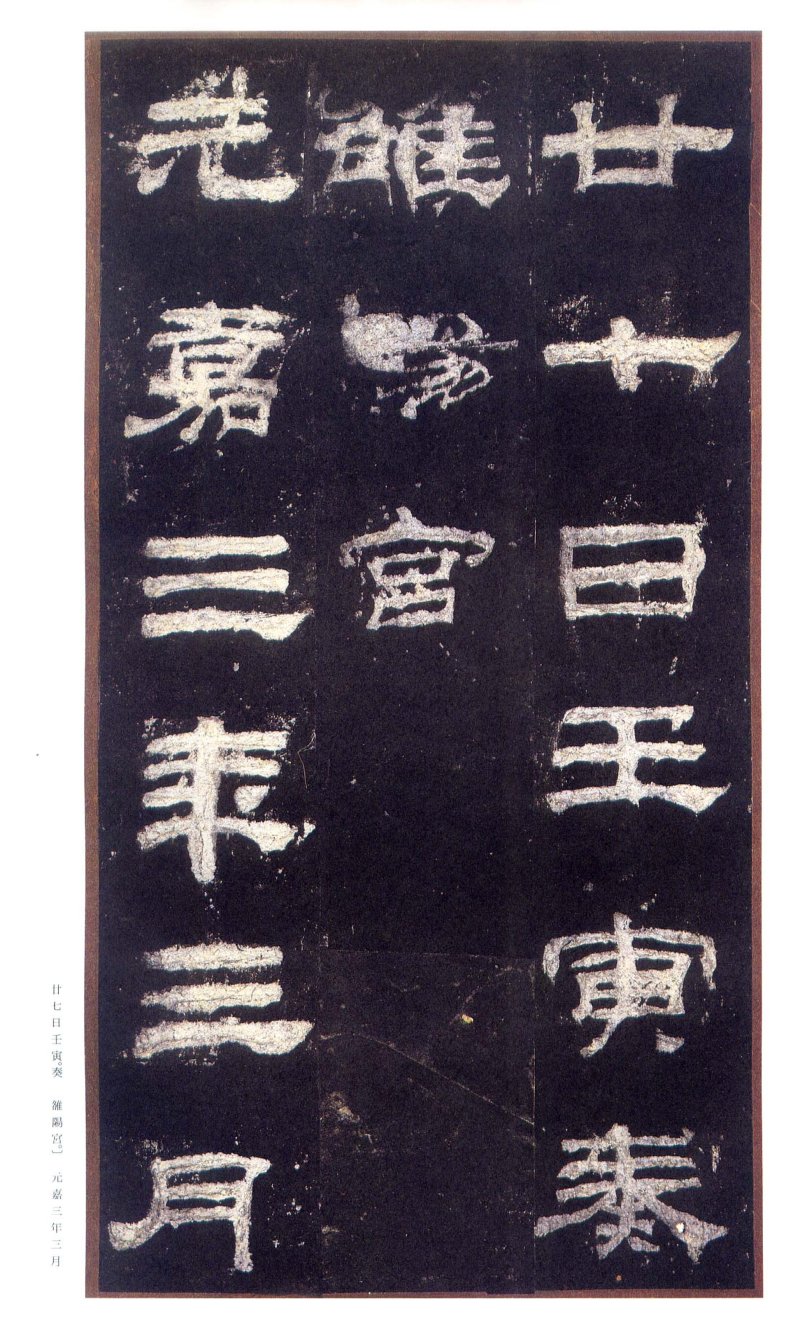 廿七日壬寅奏
雒陽宮
元嘉三年三月
廿七日壬寅。奏　雒陽宮。〕　元嘉三年三月